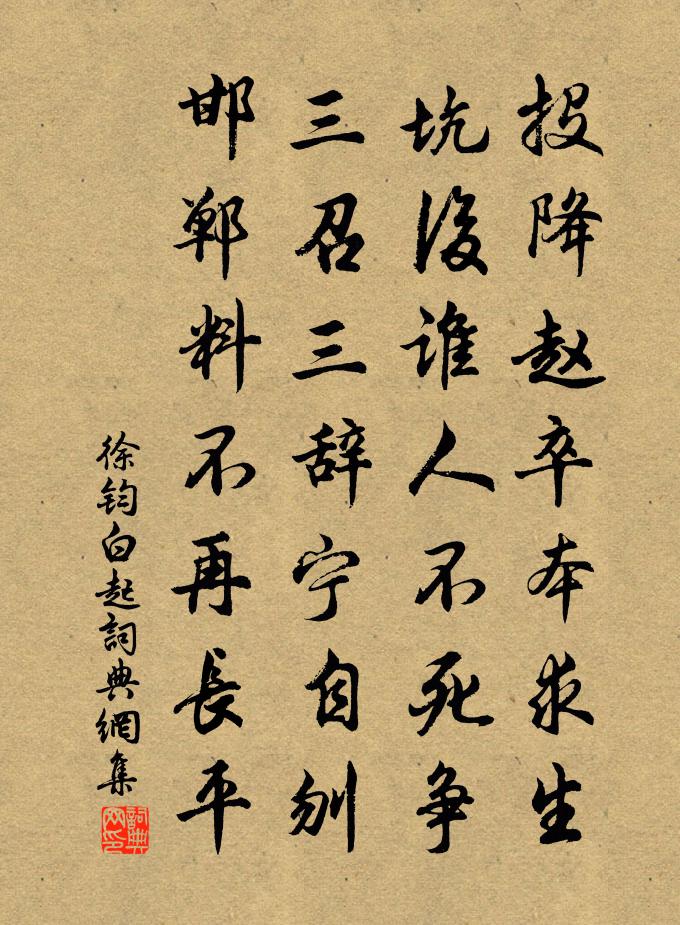 投降赵卒本求生
坑後谁人不死争
三召三辞宁自刎
邯郸料不再長平
徐钧白起詞典網集
詞典網印